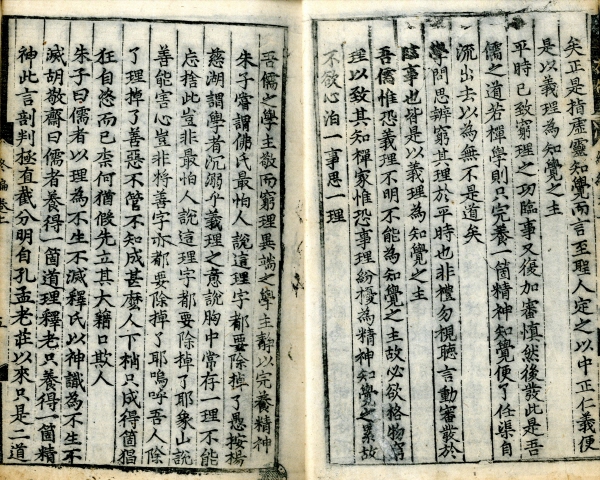 矣正是指虛靈知覺而言至聖人定之以中正仁義便
是以義理為知覺之主
平時已致窮理之功臨事又復加審慎然後發此是吾
儒之道若禪學則只完養一箇精神知覺便了任渠自
流出去以為無不是道矣
學問思辨窮其理於平時也非禮勿視聽言動審發於
臨事也皆是以義理為知覺之主
吾儒惟恐義理不明不能為知覺之主故必欲格物窮
理以致其知禪家惟恐事理紛擾為精神知覺之累故
不欲心泊一事思一理
吾儒之學主敬而窮理異端之學主靜以完養精神
朱子嘗謂佛氏最怕人說這理字都要除掉了愚按楊
慈湖謂學者沉溺乎義理之意說胸中常存一理不能
忘捨此豈非最怕人說這理字都要除掉了耶象山說
善能害心豈非將善字亦都要除掉了耶嗚呼吾人除
了理掉了善惡不管不知成甚麼人下梢只成得箇猖
狂自恣而已柰何猶假先立其大籍口欺人
朱子曰儒者以理為不生不滅釋氏以神識為不生不
滅胡敬齋曰儒者養得一箇道理釋老只養得一箇精
神此言剖判極直截分明自孔孟老莊以來只是二道
終編卷上
五